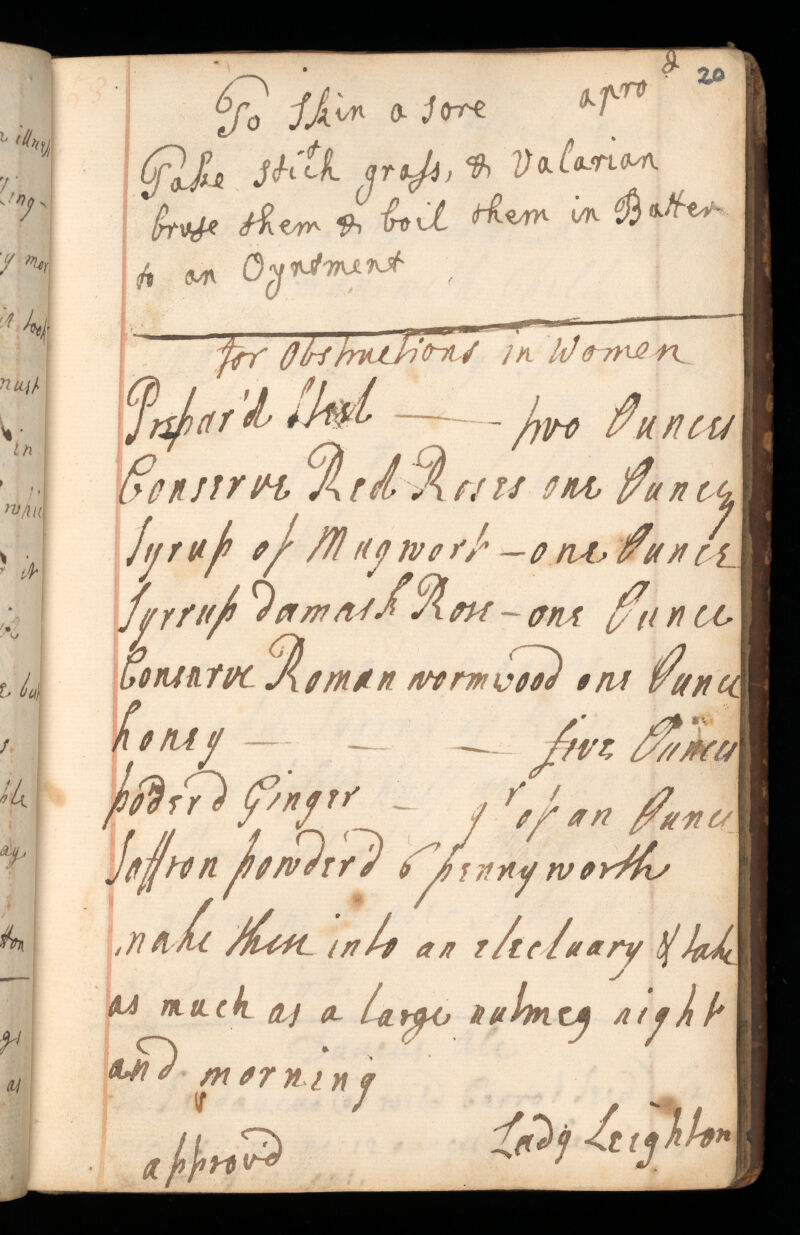 53
20
To skin a sore apro^d
Take stitch grass, & Valarian
bruse them & boil them in Butter
to an Oyntment
for Obstructions in Women
Prepar'd Steel — two Ounces
Conserve Red Roses one Ounce
Syrup of Mugwort – one Ounce
Syrrup Damask Rose – one Ounce
Conserve Roman wormwood one Ounce
honey — — — five Ounces
poderd Ginger – qr of an Ounce
Saffron powder'd 6 pennyworth
make these into an electuary & take
as much as a large nutmeg night
and morning
approv'd Lady Leighton